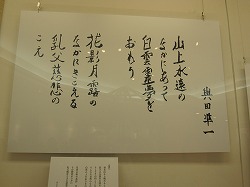 與田準一
山上水遠の
なかにあって
白雲霊夢を
おもう
花影月露の
なかにきこえる
乳父慈悲の
こえ